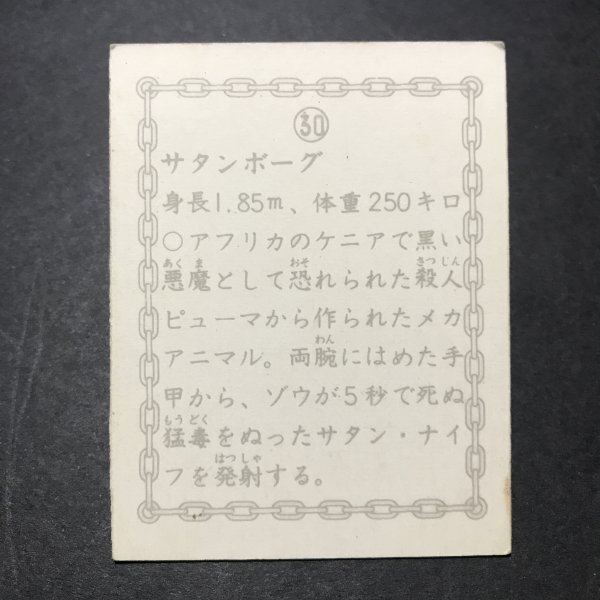 30
サタンボーグ
身長1.85m、体重250キロ
○アフリカのケニアで黒い
あくま おそ さつじん
悪魔として恐れられた殺人
ピューマから作られたメカ
わん
アニマル。両腕にはめた手
甲から、ゾウが5秒で死ぬ
もうどく
猛毒をぬったサタン・ナイ
はつしゃ
フを発射する。